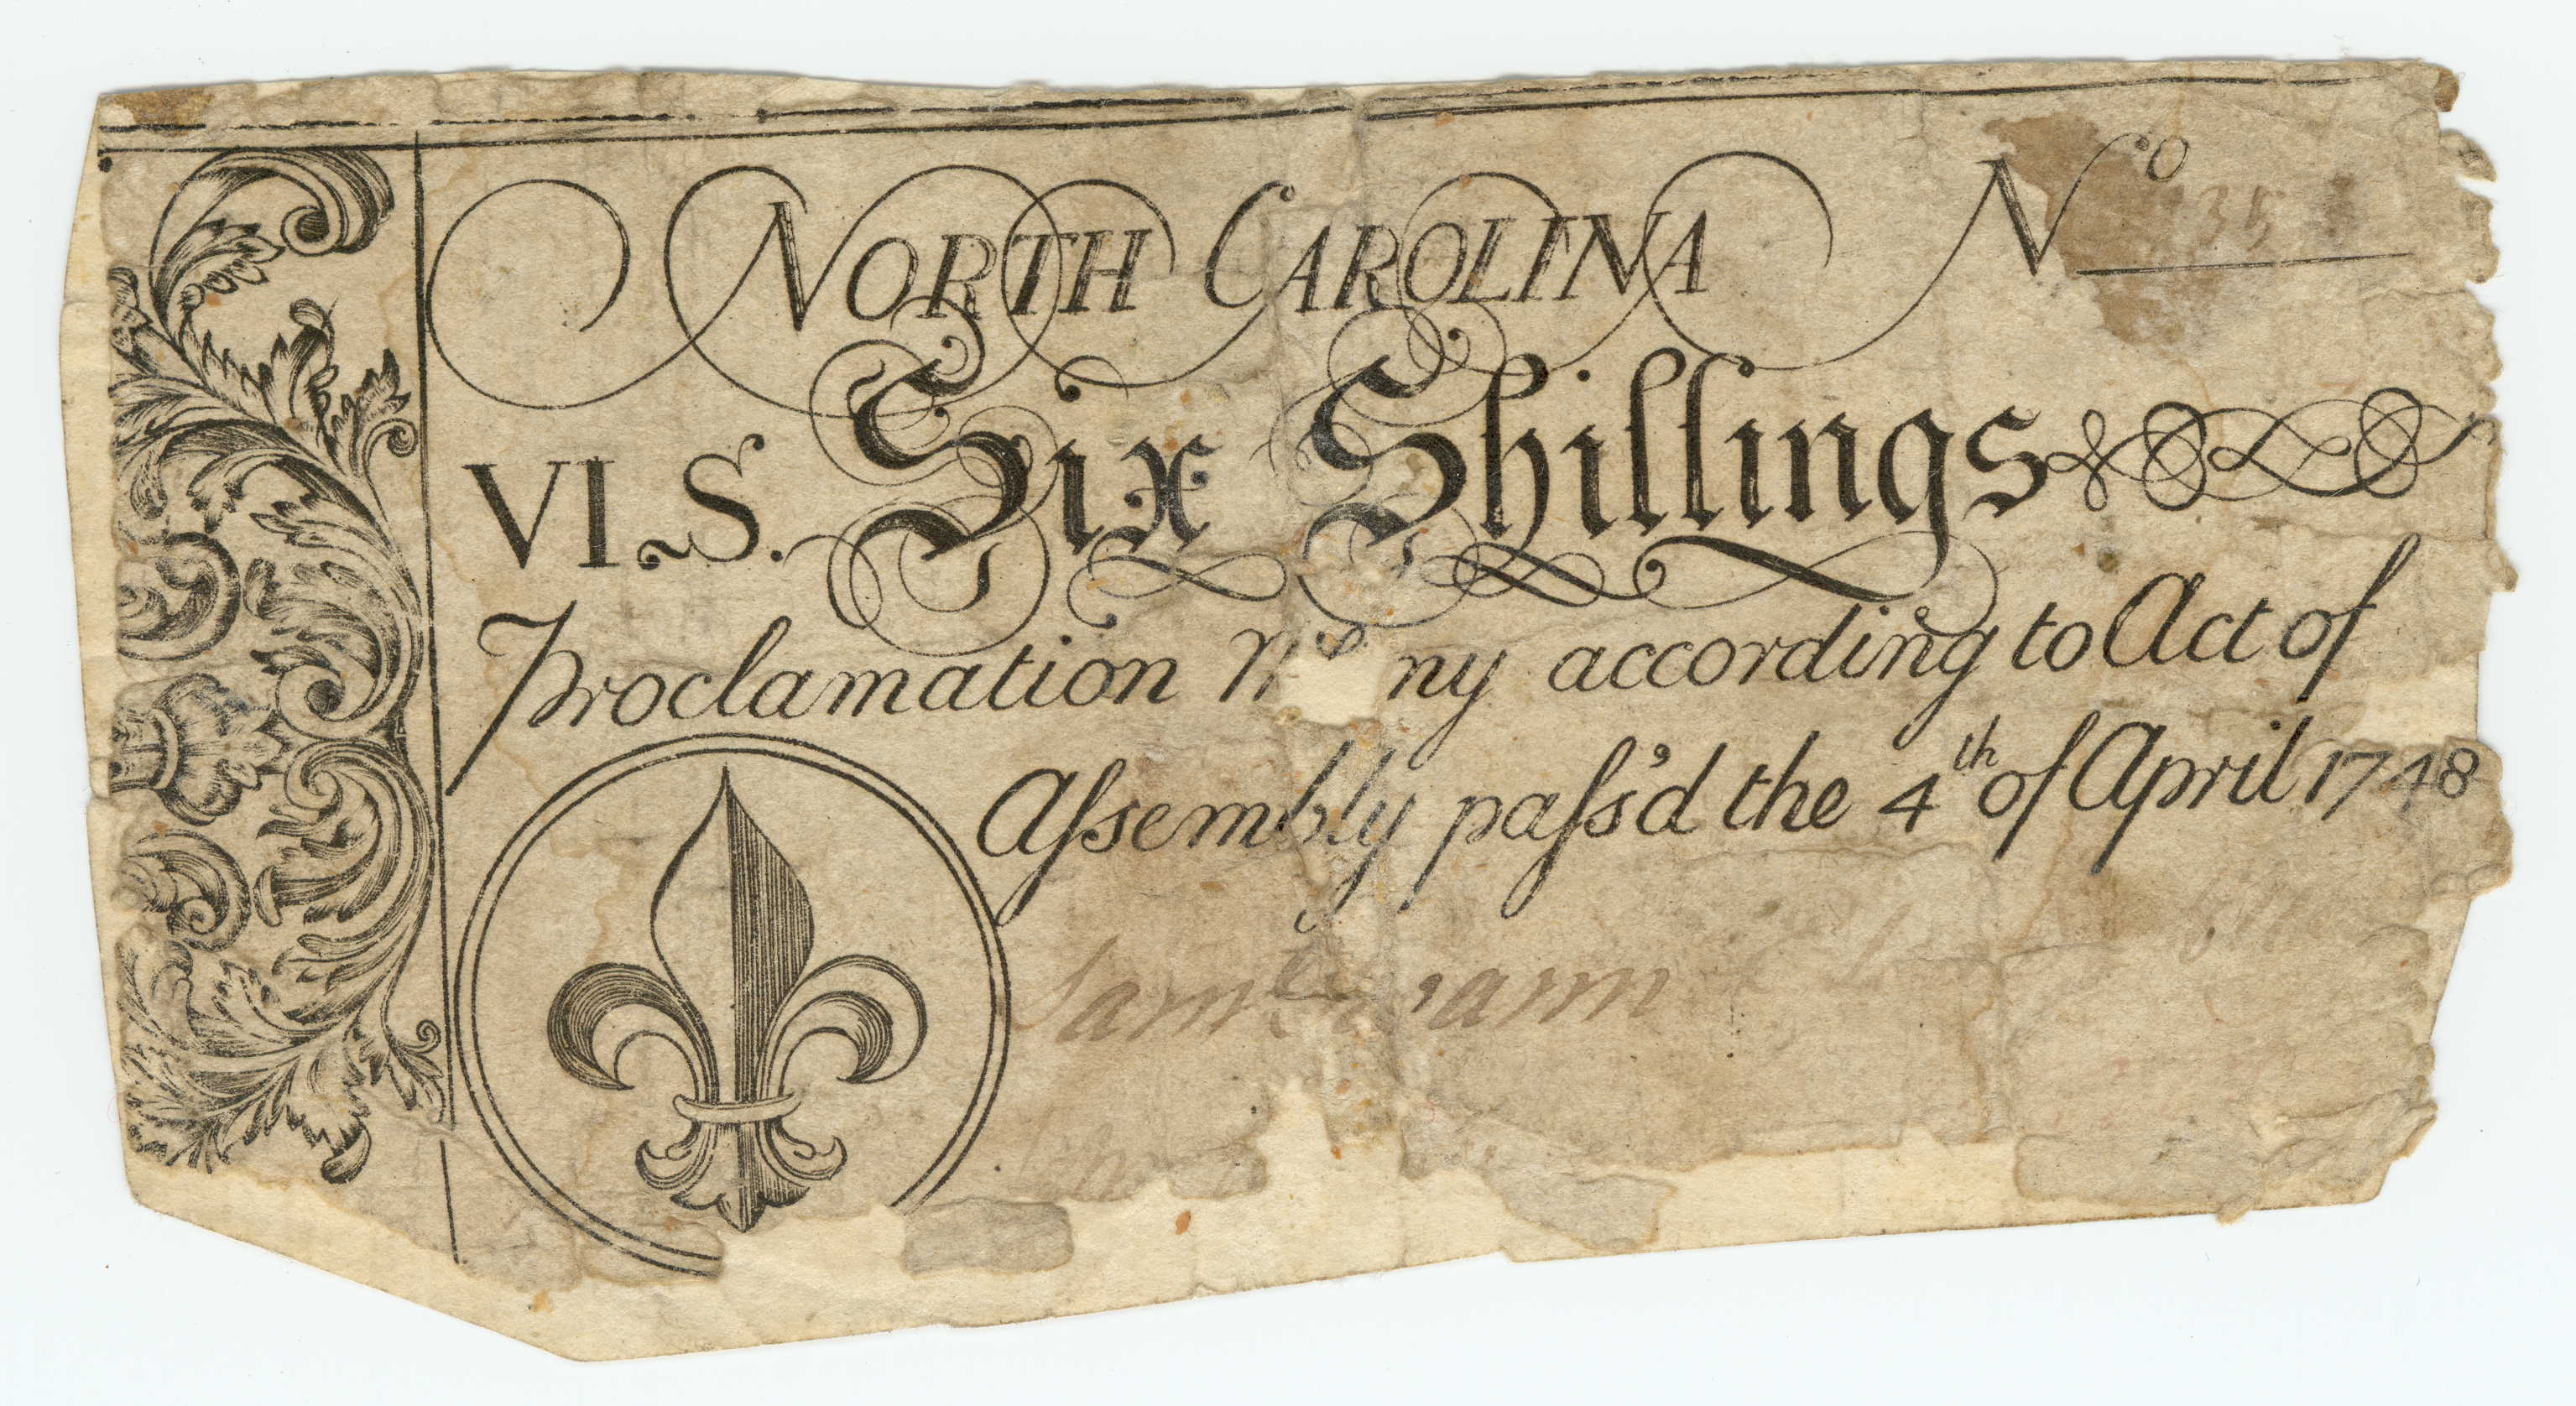 NORTH CAROLINA N.º
VI S. Six Shillings
Proclamation ny according to Act of
Aſsembly paſs'd the 4th of April 1748